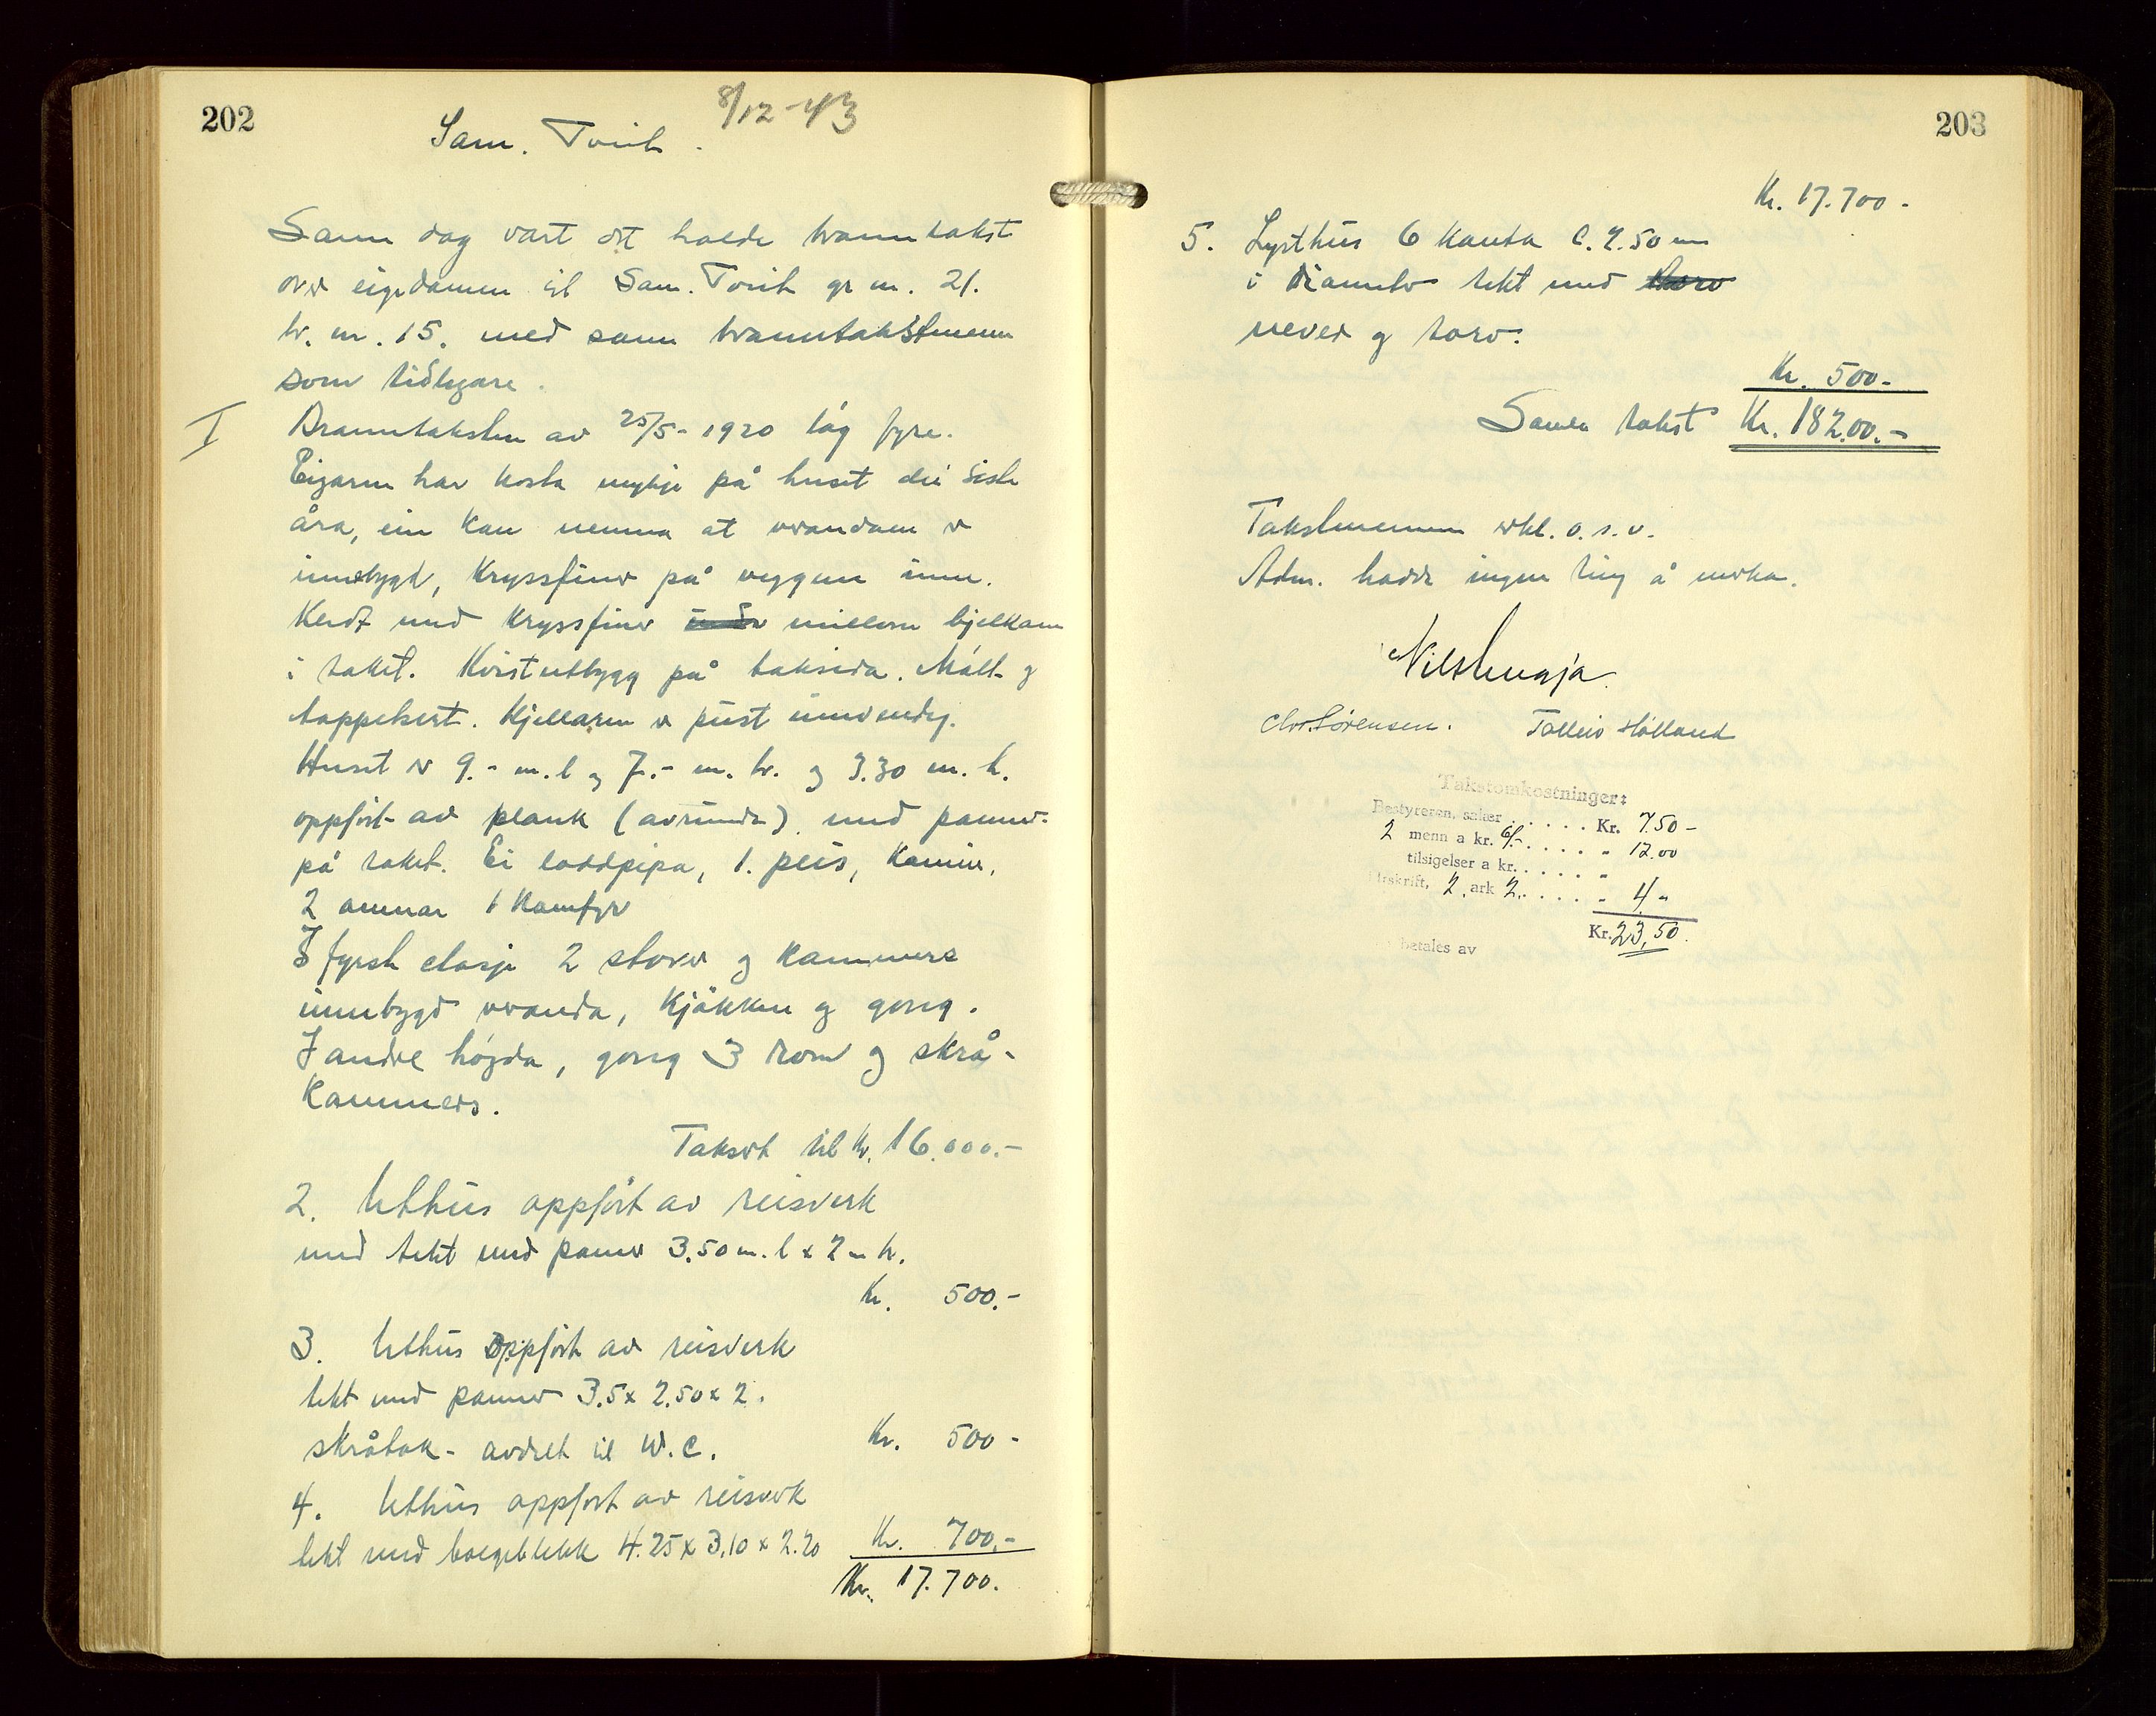 202
8/12-43
Sam. Tveit.
Same dag vart det halde branntakst
over eigedomen til Sam. Tveit gr nr. 21.
br. nr. 15. med same branntakstmenn
som tidlegare.
I Branntaksten av 25/5-1920 låg fyre.
Eigaren har kosta mykje på huset dei siste
åra, ein kan nemna at verandaen er
innebygd, Kryssfiner på veggen inne.
Kledt med Kryssfiner millom bjelkane
i taket. Kvistutbygg på taksida. Målt og
tappesert. Kjellaren er pust innvendig.
Huset er 9.- m. l og 7.- m. br. og 3.30 m. h.
oppfört av plank (avrunda) med panner
på taket. Ei loddpipa, 1. peis, Kamin,
2 omnar 1 Kamfyr
I fyrste etasje 2 stover og Kammers
innbygd veranda, Kjökken og gong.
I andre högda, gong 3 rom og skrå-
Kammers.
Taksert til kr. 16.000.-
2. Uthus oppfört av reisverk
med tekt med panner 3.50 m. l x 2 m br.
Kr. 500.-
3. Uthus oppfört av reisverk
tekt med panner 3.5 x 2.50 x 2.
skråtak- avdelt til W.C. Kr. 500-
4. Uthus oppfört av reisverk
tekt med bølgeblekk 4.25 x 3.10 x 2.20 Kr. 700.-
Kr. 17.700.
203
Kr. 17.700-
5. Lysthus 6 Kanta c. 2.50 m
i diameter tekt med
never og torv.
Kr. 500-
Samla takst Kr. 18200.-
Takstmennene erkl. o.s.v.
Adm. hadde ingen ting å merka.
Chr. Sørensen. Tolleiv Hålland
Takstomkostninger:
Bestyreren, salær ..... Kr. 7.50-
2 menn a kr. 6/-. .... " 12.00
tilsigelser a kr. ..... "
Utskrift, 2 ark 2. .... " 4-
Kr. 23,50.
betales av